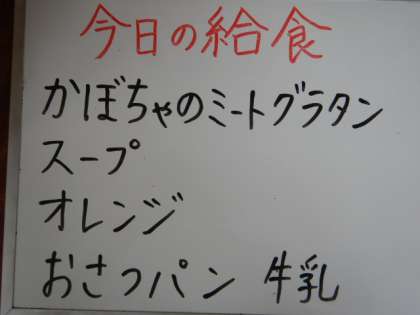 今日の給食
かぼちゃのミートグラタン
スープ
オレンジ
おさつパン 牛乳